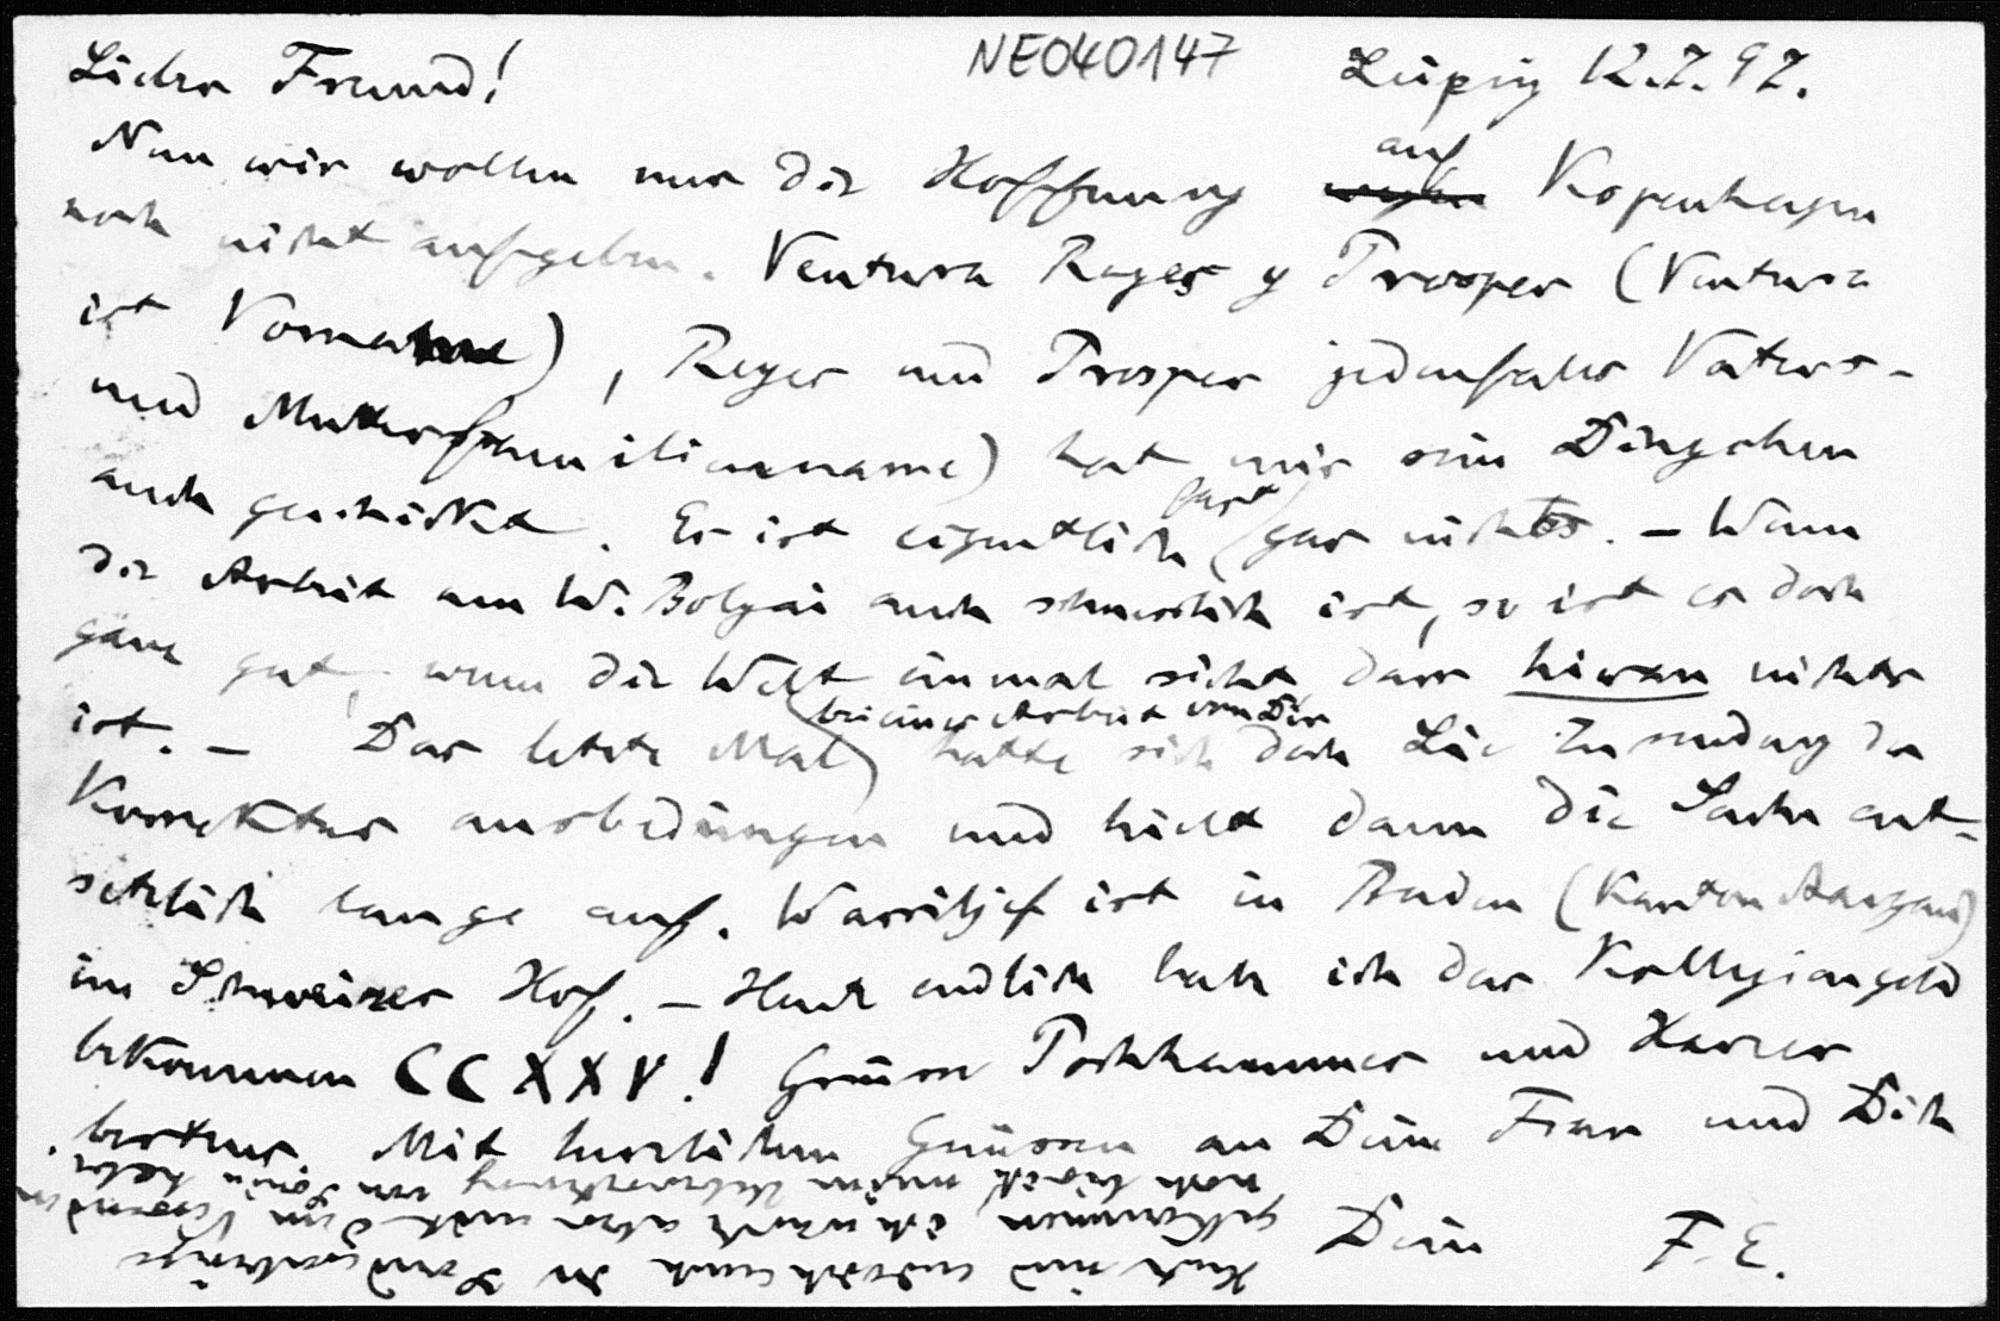 NEO40147
Lieber Freund! Leipzig 12.7.97.
Nun wir wollen nur die Hoffnung auf Kopenhagen
noch nicht aufgeben. Ventura Reyes y Prosper (Ventura
ist Vorname), Reyes und Prosper jedenfalls Vaters-
und Mutterfamilienname) hat mir sein Dingchen
auch geschickt. Es ist eigentlich fast gar nichts. - Wenn
die Arbeit am W. Bolyai auch schmerzlich ist, so ist es doch
ganz gut, wenn die Welt einmal sieht dass hieran nichts
ist. - Das letzte Mal bei einer Arbeit von Dir hatte sich doch Lie Zusendung der
Korrektur ausbedungen und hielt dann die Sache ent-
setzlich lange auf. Wassiljef ist in Baden (Kanton Aargau)
im Schweizer Hof. - Heute endlich habe ich das Kollegiengeld
bekommen CCXXV! Grüsse Pochhammer und Harzer
bestens. Mit herzlichen Grüssen an Deine Frau und Dich
Dein F. E.
Heute sind endlich auch die
gekommen, ich werde aber mit dem
noch meine habe.